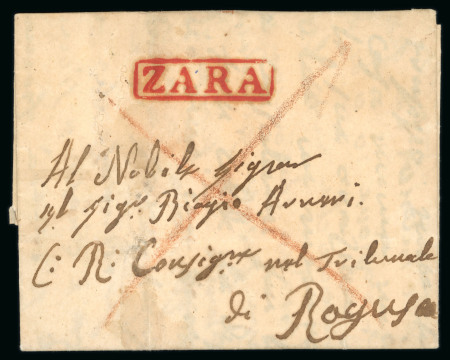 ZARA
Al Nobile Signor
il Sigr. Biagio
C: R: Consigre nel Tribunale
di Ragusa